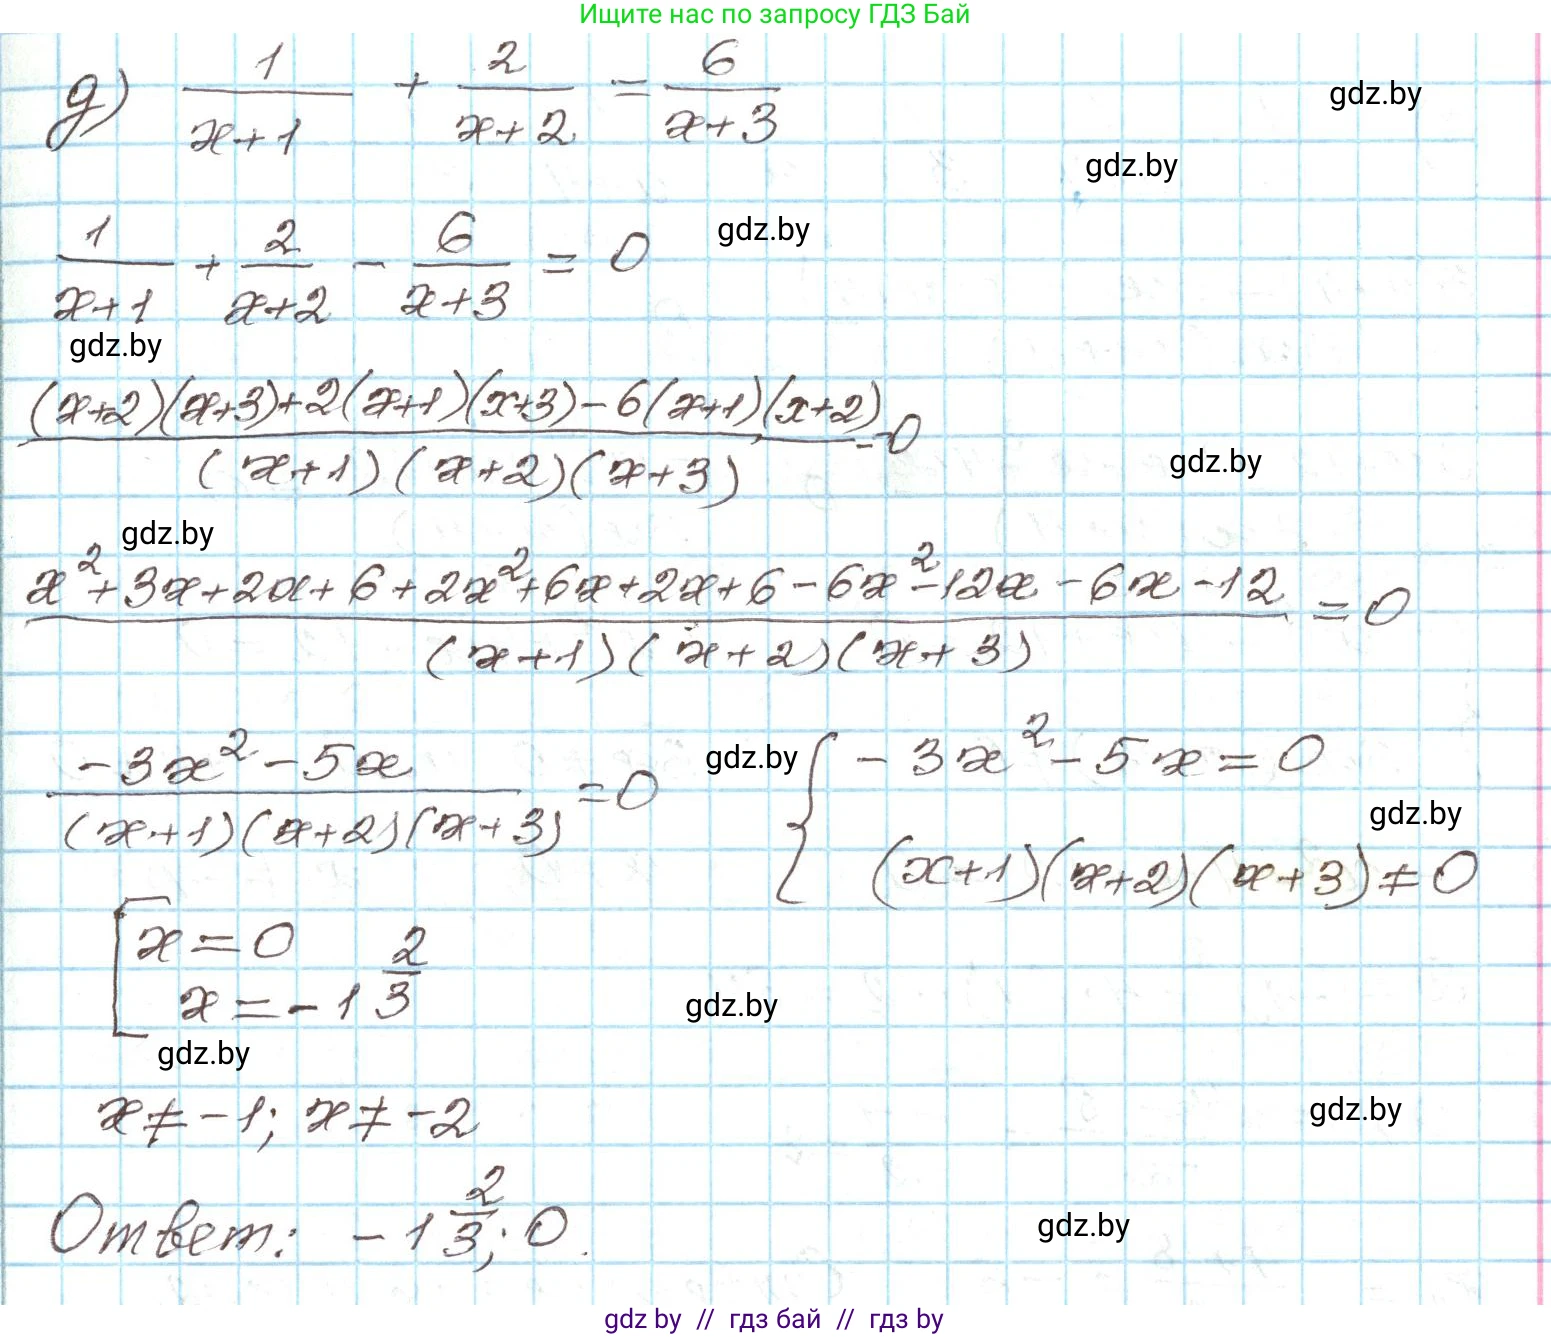 Ищите нас по запросу ГДЗ Бай
д) 1/(x+1) + 2/(x+2) = 6/(x+3)
gdz.by
gdz.by
1/(x+1) + 2/(x+2) - 6/(x+3) = 0
gdz.by
gdz.by
((x+2)(x+3)+2(x+1)(x+3)-6(x+1)(x+2))/((x+1)(x+2)(x+3)) = 0
gdz.by
gdz.by
(x²+3x+2x+6+2x²+6x+2x+6-6x²-12x-6x-12)/((x+1)(x+2)(x+3)) = 0
(-3x²-5x)/((x+1)(x+2)(x+3)) = 0
gdz.by
{ -3x²-5x=0
gdz.by
(x+1)(x+2)(x+3)≠0
[ x=0
x=-1 2/3
gdz.by
gdz.by
x≠-1; x≠-2
gdz.by
Ответ: -1 2/3; 0.
gdz.by
gdz by // гдз бай // гдз by